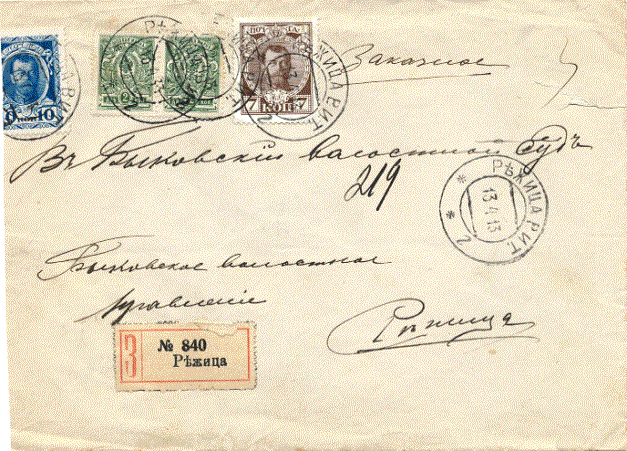 Заказное
10
7
КОП 7
РѢЖИЦА ВИТ.
Въ Быковскій волостной Судъ
219
РѢЖИЦА ВИТ.
13 4 13
2
Быковское волостное
правленіе
Рѣжица
З
№ 840
Рѣжица